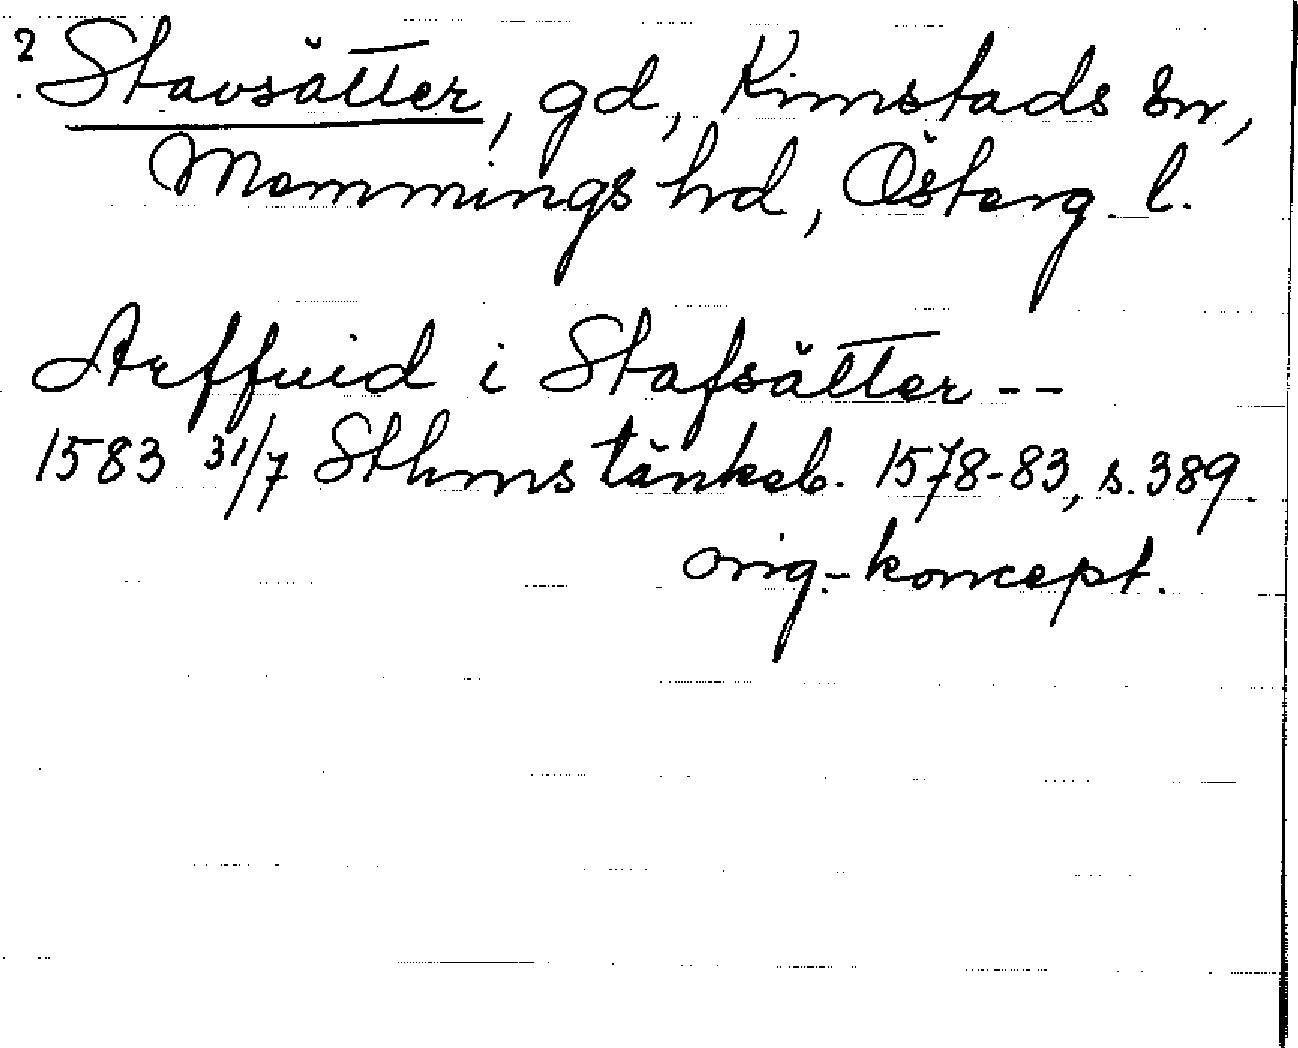 ? Stavsätter, gd, Kimstads sn,
Memmings hd, Österg. l.
Arffuid i Stafsätter --
1583 31/7 Sthms tänkeb. 1578-83, s. 389.
orig.-koncept.